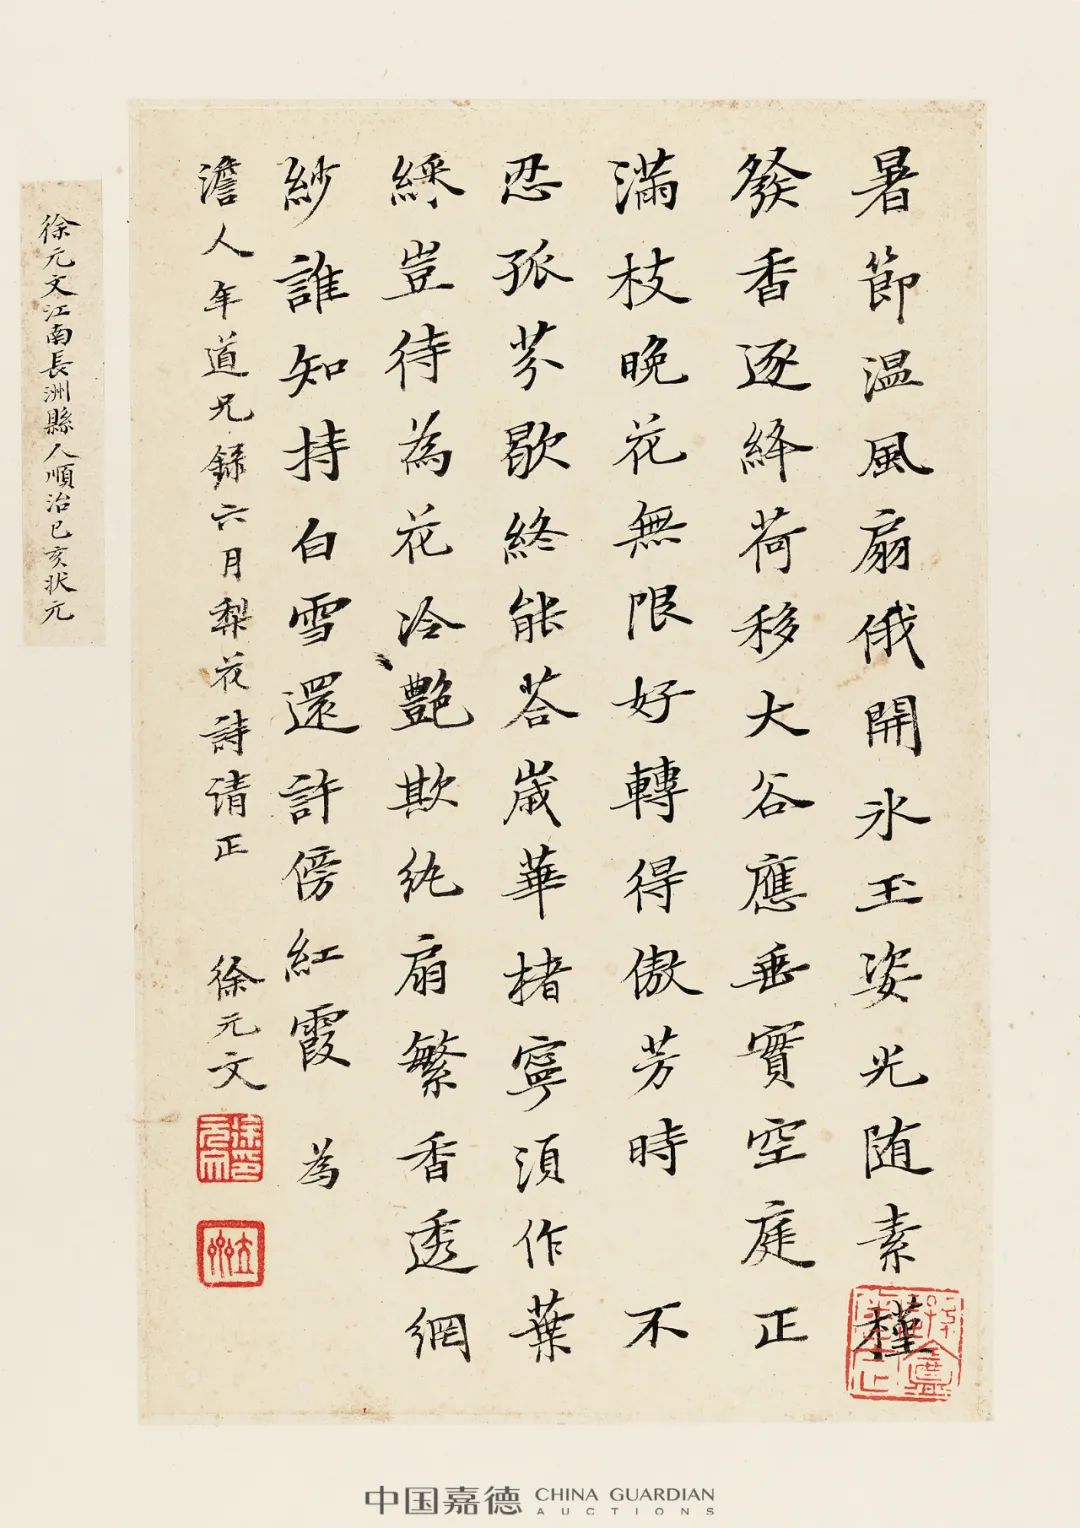 暑節温風扇俄開氷玉姿光随素槿
發香逐絳荷移大谷應垂實空庭正
滿枝晚花無限好轉得傲芳時 不
忍孤芬歇終能荅歲華楮寧須作葉
綵豈待為花冷艷欺紈扇繁香透網
紗誰知持白雪還許傍紅霞 為
澹人年道兄錄六月梨花詩请正 徐元文
徐元文江南長洲縣人順治己亥状元
中国嘉德 CHINA GUARDIAN
AUCTIONS